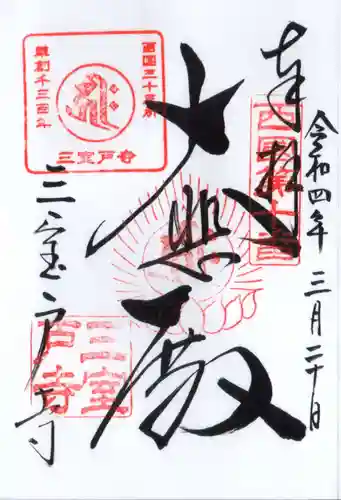 奉拝
令和四年三月二十日
西国第十番
大悲殿
西国三十三所
草創千三百年
三室戸寺
三室戸寺
三室戸寺